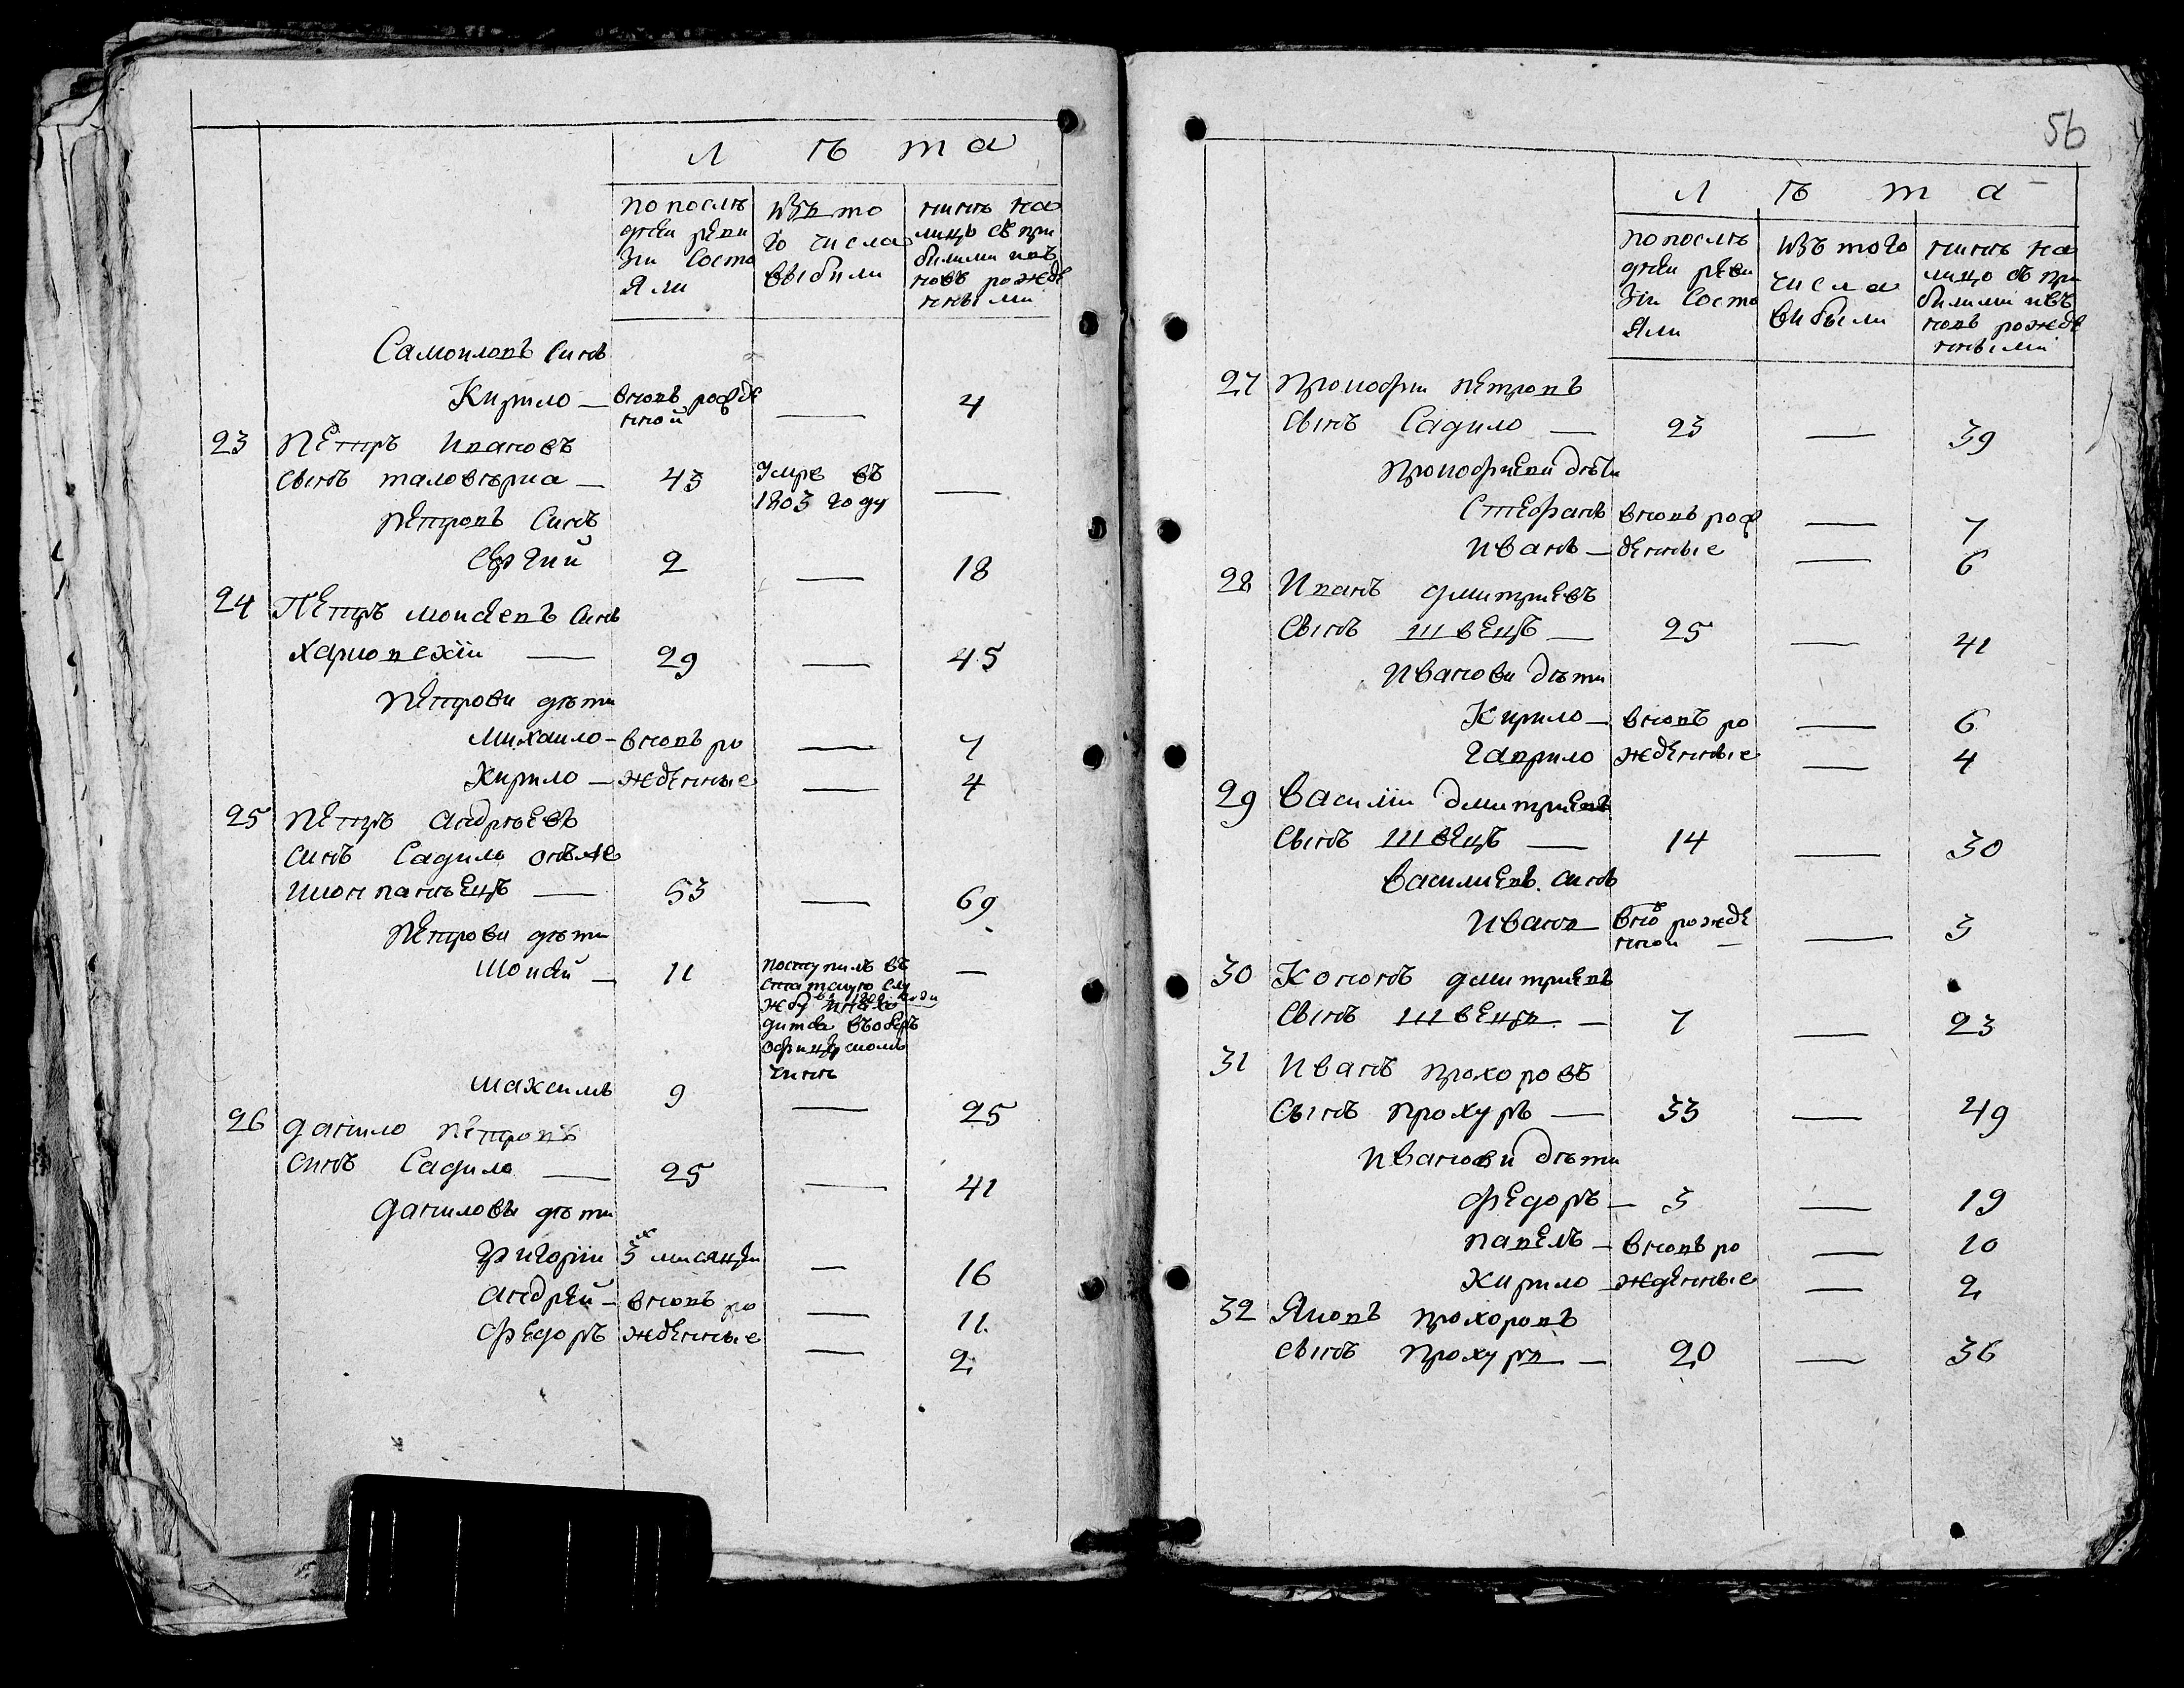 Л ѣ т а
по послѣ
дней реви
зіи состо
яли
изъ то
го числа
выбыли
нынѣ на
лицо съ при
былими и въ
новъ рожде
нными
Самоиловъ синъ
Кирило — вновь рожде
нной — 4
23 Петръ Ивановъ
сынъ таловѣриа — 43 умре въ
1803 году —
Петровъ синъ
Сергий 2 — 18
24 Петръ Мойсеевъ синъ
— 29 — 45
Петрови дѣти
Михаило — вновь ро — 7
Кирило — жденные — 4
25 Петръ Андрѣевъ
синъ Садило онъ же
— 53 — 69
Петрови дѣти
Моисей — 11 поступилъ въ
статскую слу
жбу
дится въ оберъ
офицерскомъ
чинѣ —
Максимъ 9 — 25
26 Данило Петровъ
синъ Садило — 25 — 41
Даниловы дѣти
Григорій 3х мисяцей — 16
Андрей — вновь ро — 11
Федоръ жденные — 2
56
Л ѣ т а
по послѣ
дней реви
зіи состо
яли
изъ того
числа
выбыли
нынѣ на
лицо съ при
былими и въ
новь рожде
нными
27 Прокофий Петровъ
сынъ Садило — 23 — 39
Прокофиеви дѣти
Стефанъ вновь рож — 7
Иванъ — денные — 6
28 Иванъ Дмитриевъ
сынъ Швецъ — 25 — 41
Иванови дѣти
Кирило — вновь ро — 6
Гаврило жденные — 4
29 Василій Дмитриевъ
сынъ Швецъ — 14 — 30
Василиевъ синъ
Иванъ — вно рожде
нной — — 3
30 Кононъ Дмитриевъ
сынъ Швецъ — 7 — 23
31 Иванъ Прохоровъ
сынъ Прохуръ — 33 — 49
Иванови дѣти
Федоръ — 3 — 19
Павелъ — вновь ро — 10
Кирило — жденные — 2
32 Яковъ Прохоровъ
сынъ Прохуръ — 20 — 36